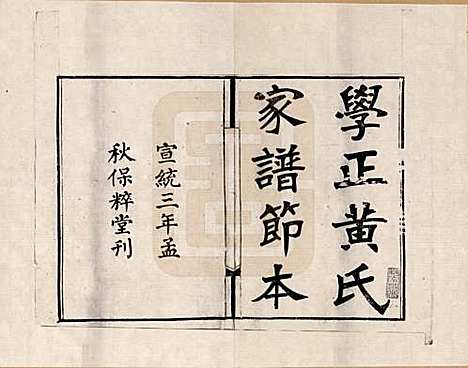 學正黃氏
家譜節本
宣統三年孟
秋保粹堂刊